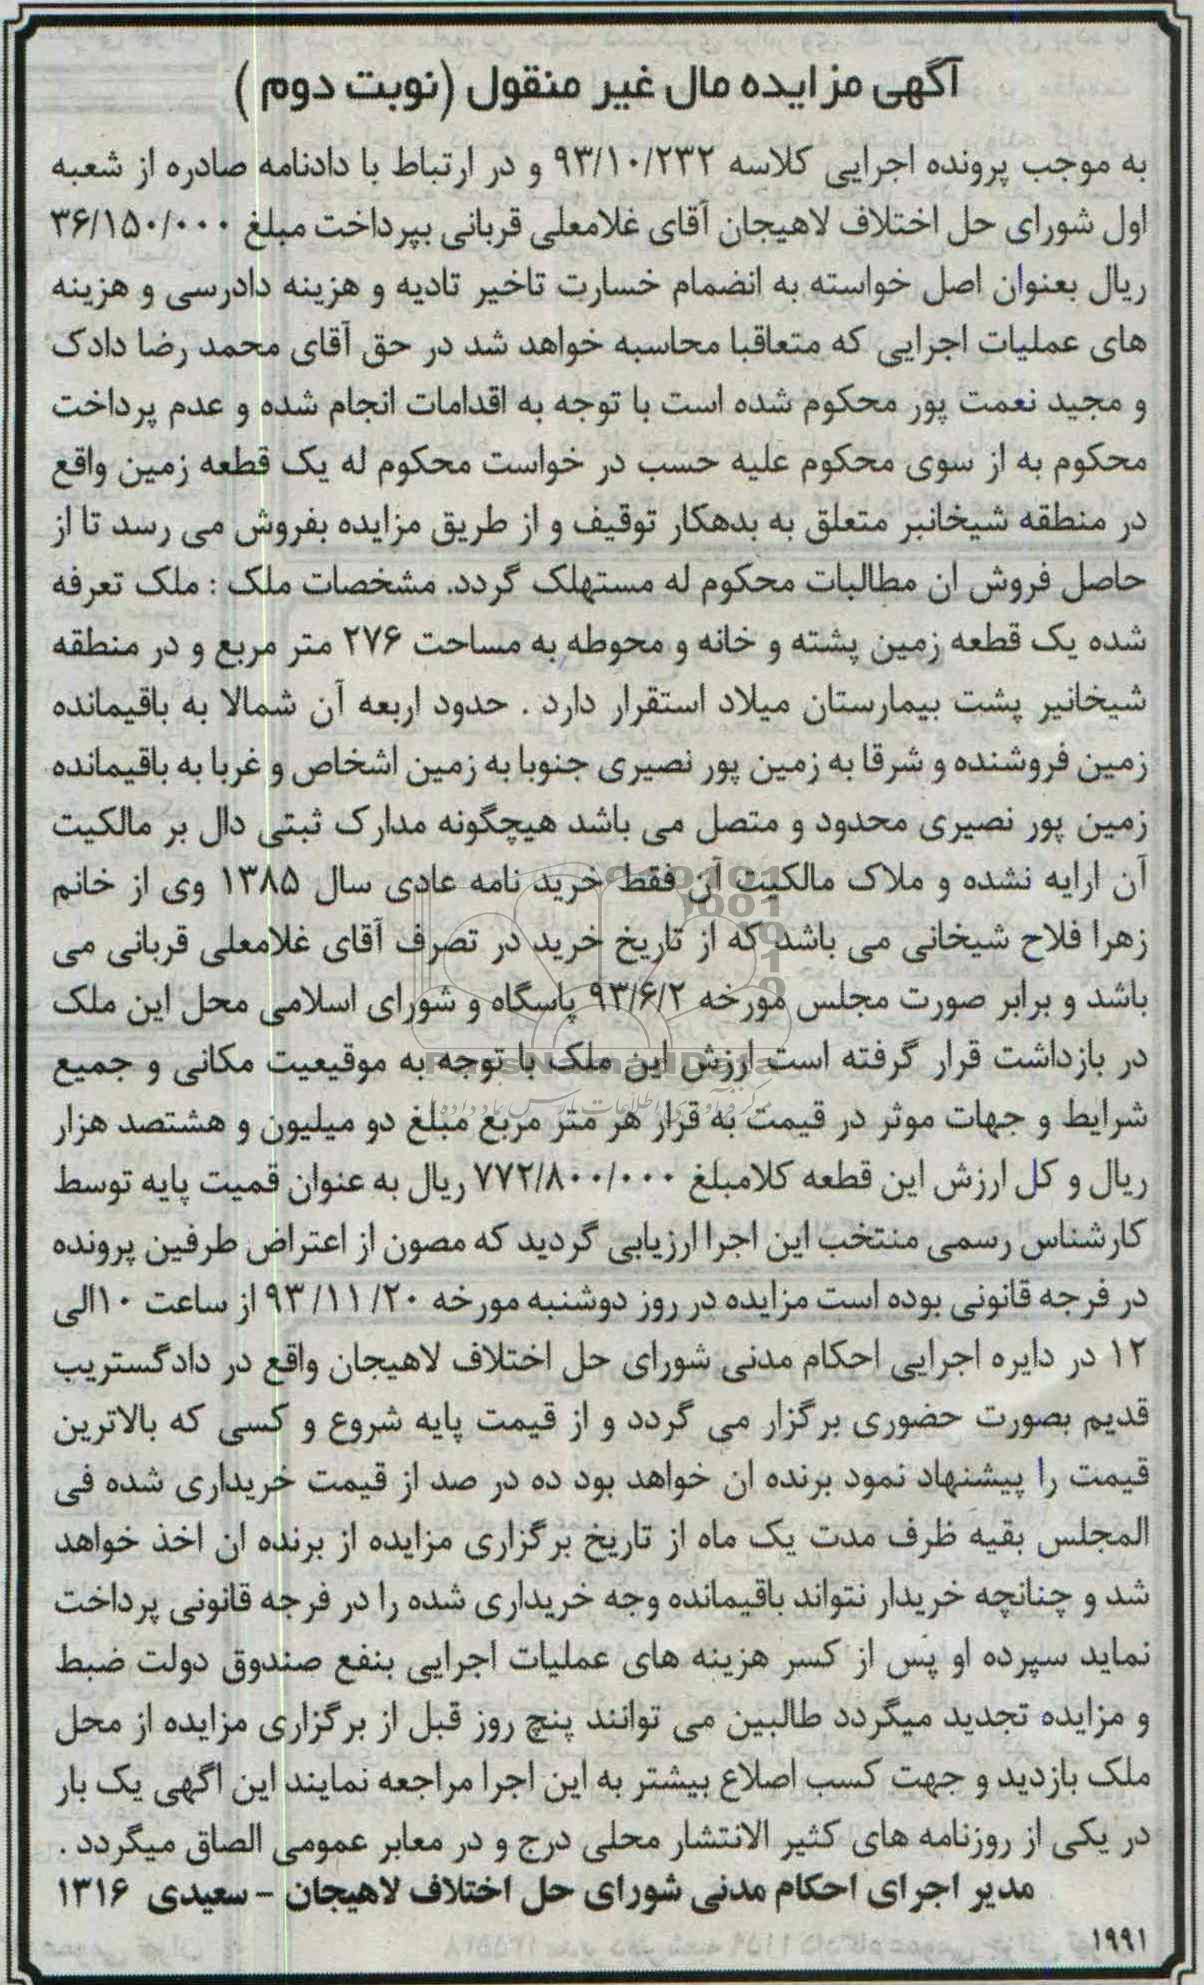 آگهی مزایده مال غیر منقول (نوبت دوم)
به موجب پرونده اجرایی کلاسه ۹۳/۱۰/۲۳۲ و در ارتباط با دادنامه صادره از شعبه
اول شورای حل اختلاف لاهیجان آقای غلامعلی قربانی بپرداخت مبلغ ۳۶/۱۵۰/۰۰۰
ریال بعنوان اصل خواسته به انضمام خسارت تاخیر تادیه و هزینه دادرسی و هزینه
های عملیات اجرایی که متعاقبا محاسبه خواهد شد در حق آقای محمد رضا دادک
و مجید نعمت پور محکوم شده است با توجه به اقدامات انجام شده و عدم پرداخت
محکوم به از سوی محکوم علیه حسب در خواست محکوم له یک قطعه زمین واقع
در منطقه شیخانبر متعلق به بدهکار توقیف و از طریق مزایده بفروش می رسد تا از
حاصل فروش ان مطالبات محکوم له مستهلک گردد. مشخصات ملک : ملک تعرفه
شده یک قطعه زمین پشته و خانه و محوطه به مساحت ۲۷۶ متر مربع و در منطقه
شیخانیر پشت بیمارستان میلاد استقرار دارد . حدود اربعه آن شمالا به باقیمانده
زمین فروشنده و شرقا به زمین پور نصیری جنوبا به زمین اشخاص و غربا به باقیمانده
زمین پور نصیری محدود و متصل می باشد هیچگونه مدارک ثبتی دال بر مالکیت
آن ارایه نشده و ملاک مالکیت آن فقط خرید نامه عادی سال ۱۳۸۵ وی از خانم
زهرا فلاح شیخانی می باشد که از تاریخ خرید در تصرف آقای غلامعلی قربانی می
باشد و برابر صورت مجلس مورخه ۹۳/۶/۲ پاسگاه و شورای اسلامی محل این ملک
در بازداشت قرار گرفته است ارزش این ملک با توجه به موقیعیت مکانی و جمیع
شرایط و جهات موثر در قیمت به قرار هر متر مربع مبلغ دو میلیون و هشتصد هزار
ریال و کل ارزش این قطعه کلامبلغ ۷۷۲/۸۰۰/۰۰۰ ریال به عنوان قمیت پایه توسط
کارشناس رسمی منتخب این اجرا ارزیابی گردید که مصون از اعتراض طرفین پرونده
در فرجه قانونی بوده است مزایده در روز دوشنبه مورخه ۹۳/۱۱/۲۰ از ساعت ۱۰الی
۱۲ در دایره اجرایی احکام مدنی شورای حل اختلاف لاهیجان واقع در دادگستریب
قدیم بصورت حضوری برگزار می گردد و از قیمت پایه شروع و کسی که بالاترین
قیمت را پیشنهاد نمود برنده ان خواهد بود ده در صد از قیمت خریداری شده فی
المجلس بقیه ظرف مدت یک ماه از تاریخ برگزاری مزایده از برنده ان اخذ خواهد
شد و چنانچه خریدار نتواند باقیمانده وجه خریداری شده را در فرجه قانونی پرداخت
نماید سپرده او پس از کسر هزینه های عملیات اجرایی بنفع صندوق دولت ضبط
و مزایده تجدید میگردد طالبین می توانند پنج روز قبل از برگزاری مزایده از محل
ملک بازدید و جهت کسب اصلاع بیشتر به این اجرا مراجعه نمایند این اگهی یک بار
در یکی از روزنامه های کثیر الانتشار محلی درج و در معابر عمومی الصاق میگردد .
مدیر اجرای احکام مدنی شورای حل اختلاف لاهیجان - سعیدی ۱۳۱۶
۱۹۹۱